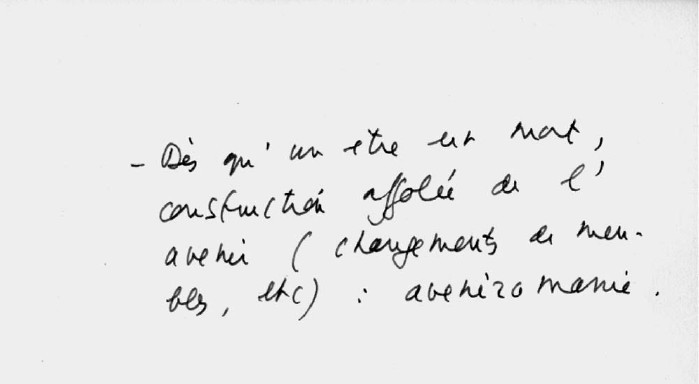 – Dès qu'un être est mort,
construction affolée de l'
avenir (changements de meu-
bles, etc) : aveniromanie.